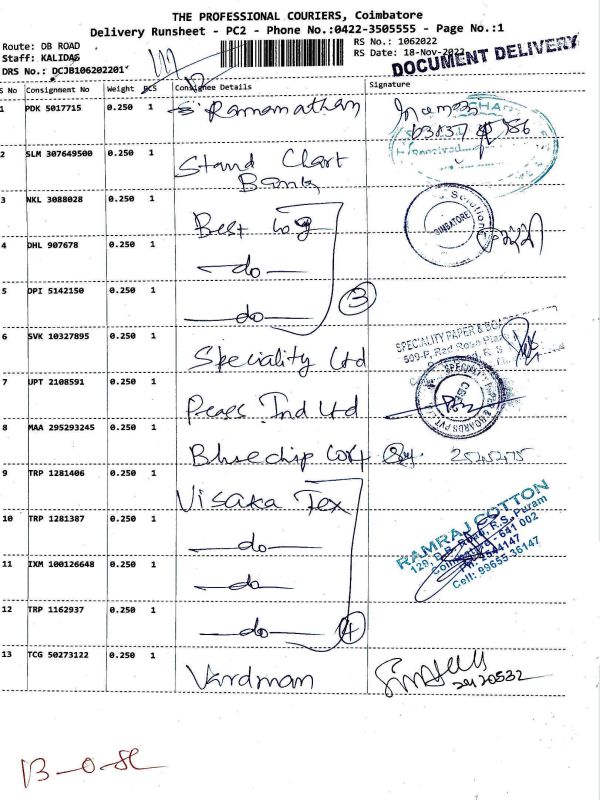 THE PROFESSIONAL COURIERS, Coimbatore
Delivery Runsheet - PC2 - Phone No.:0422-3505555 - Page No.:1
Route: DB ROAD
RS No.: 1062022
Staff: KALIDAS
RS Date: 18-Nov-2022
DRS No.: DCJB106202201
DOCUMENT DELIVERY
S No Consignment No Weight PCS Consignee Details Signature
1 PDK 5017715 0.250 1 S. Ramanathan
2 SLM 307649500 0.250 1 Stand Chart
Bank
3 NKL 3088028 0.250 1 Best Log
4 DHL 907678 0.250 1 —do—
5 DPI 5142150 0.250 1 —do— 3
6 SVK 10327895 0.250 1 Speciality Ltd
SPECIALITY PAPER &
7 UPT 2108591 0.250 1 Ind Ltd
8 MAA 295293245 0.250 1 Bluechip
9 TRP 1281406 0.250 1 Visaka Tex
10 TRP 1281387 0.250 1 —do—
RAMRAJ COTTON
129, D.B. Road, R.S. Puram
Coimbatore - 641 002
Ph: 2544147
Cell: 99655 36147
11 IXM 100126648 0.250 1 —do—
12 TRP 1162937 0.250 1 —do— 4
13 TCG 50273122 0.250 1 Vardman
13-0-